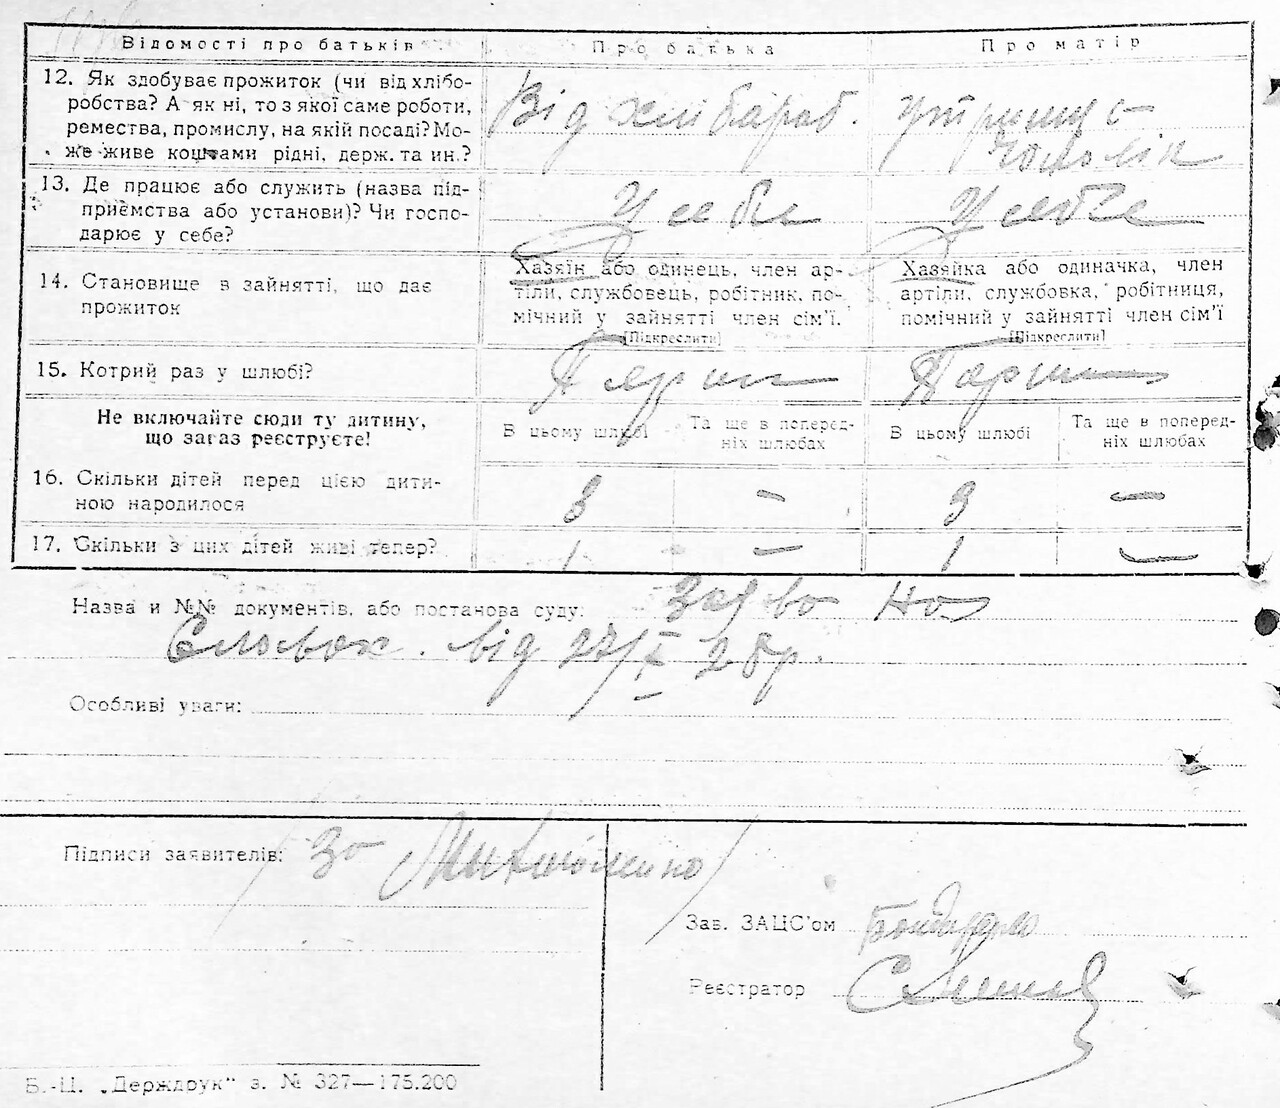 Відомості про батьків
Про батька
Про матір
12. Як здобуває прожиток (чи від хлібо-
робства? А як ні, то з якої саме роботи,
ремества, промислу, на якій посаді? Мо-
же живе коштами рідні, держ. та ин.?
Від хлібароб.
утриму є
чоловік
13. Де працює або служить (назва під-
приємства або установи)? Чи госпо-
дарює у себе?
У себе
У себе
14. Становище в зайнятті, що дає
прожиток
Хазяїн або одинець, член ар-
тілі, службовець, робітник, по-
мічний у зайнятті член сім'ї.
[Підкреслити]
Хазяйка або одиначка, член
артіли, службовка, робітниця,
помічний у зайнятті член сім'ї
[Підкреслити]
15. Котрий раз у шлюбі?
Не включайте сюди ту дитину,
що зараз реєструєте!
В цьому шлюбі
Та ще в поперед-
ніх шлюбах
В цьому шлюбі
Та ще в поперед-
ніх шлюбах
16. Скільки дітей перед цією дити-
ною народилося
3 — 3 —
17. Скільки з цих дітей живі тепер?
1 — 1 —
Назва и №№ документів, або постанова суду: Заява на
Словах. від 27/X 2 р.
Особливі уваги:
Підписи заявителів: За
Зав. ЗАЦС'ом
Реєстратор
Б.-Ц. „Держдрук" з. № 327—175.200